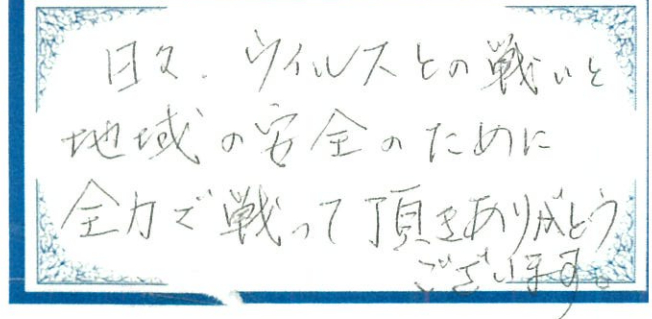 日々、ウイルスとの戦いと
地域の安全のために
全力で戦って頂きありがとう
ございます。